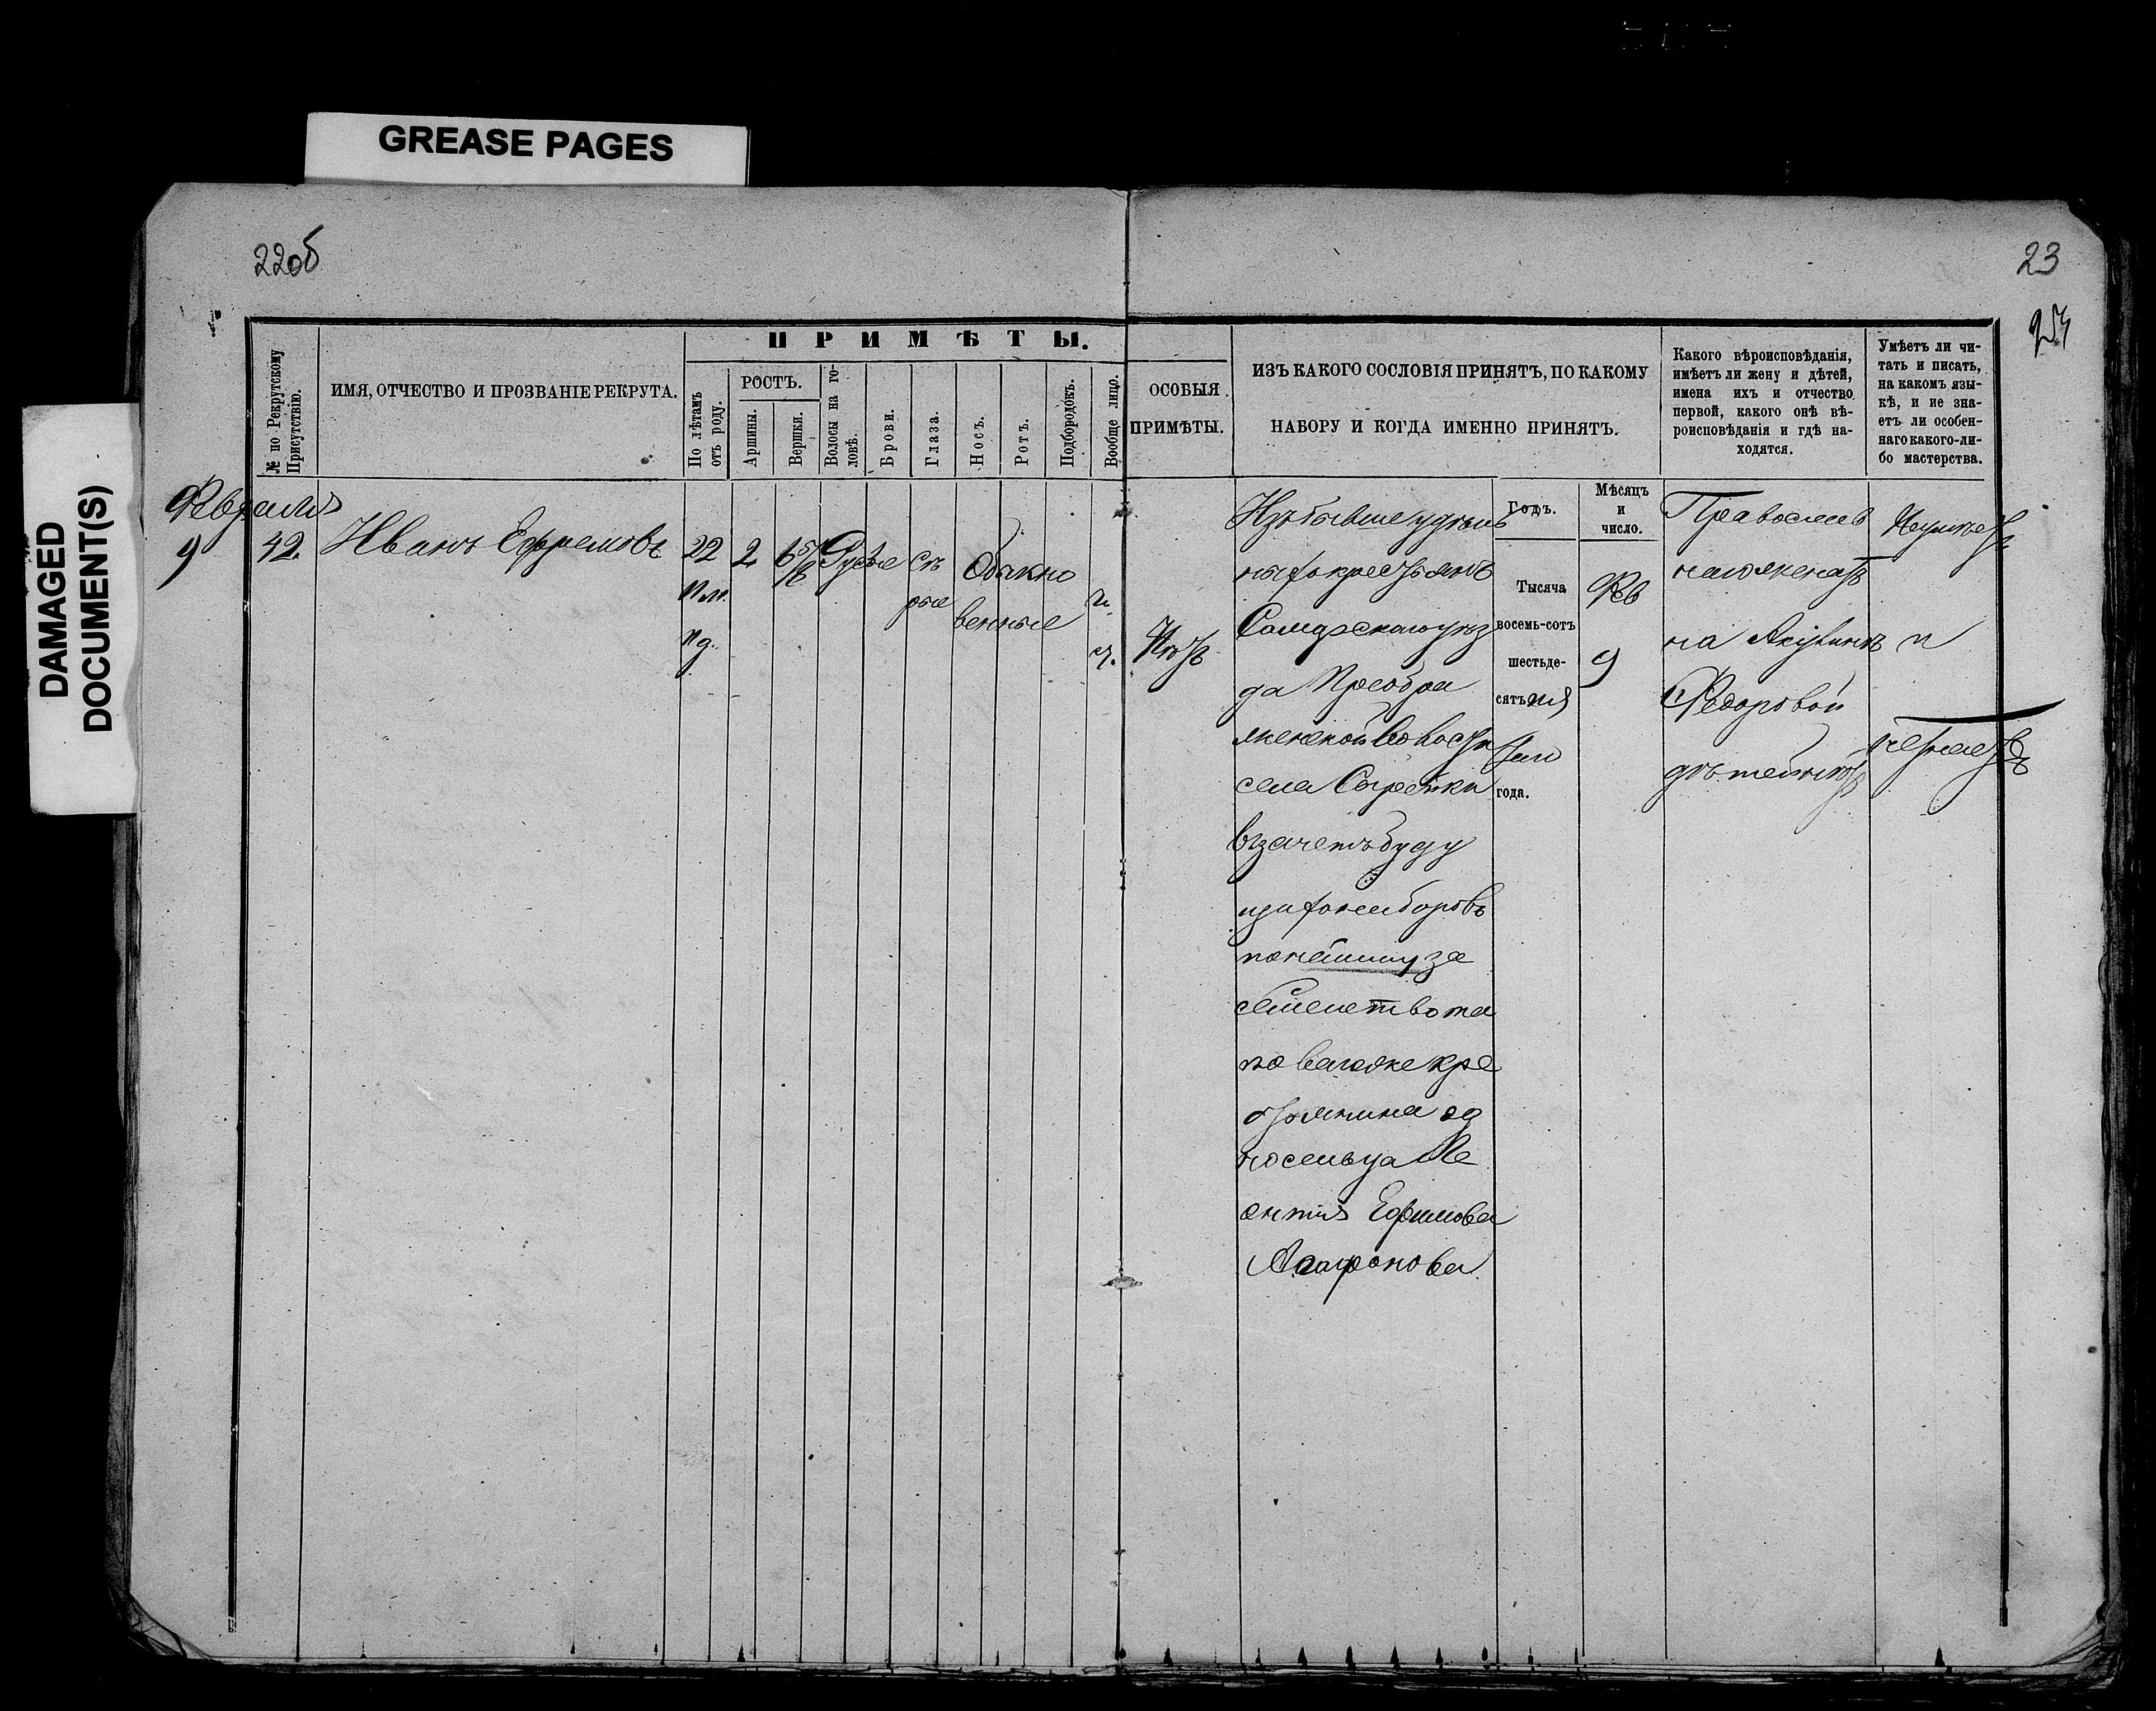 GREASE PAGES
DAMAGED
DOCUMENT(S)
22об
23
ПРИМѢТЫ.
№ по Рекрутскому
Присутствію.
ИМЯ, ОТЧЕСТВО И ПРОЗВАНІЕ РЕКРУТА.
По лѣтамъ
отъ роду.
РОСТЪ.
Аршины.
Вершки.
Волосы на го-
ловѣ.
Брови.
Глаза.
Носъ.
Ротъ.
Подбородокъ.
Вообще лицо.
ОСОБЫЯ
ПРИМѢТЫ.
ИЗЪ КАКОГО СОСЛОВІЯ ПРИНЯТЪ, ПО КАКОМУ
НАБОРУ И КОГДА ИМЕННО ПРИНЯТЪ.
Какого вѣроисповѣданія,
имѣетъ ли жену и дѣтей,
имена ихъ и отчество
первой, какого онѣ вѣ-
роисповѣданія и гдѣ на-
ходятся.
Умѣетъ ли чи-
тать и писать,
на какомъ язы-
кѣ, и не зна-
етъ ли особен-
наго какого-ли-
бо мастерства.
Февраля
9
42.
Иванъ Ефремовъ
22
2
6 5/8
Русые
сѣ
рые
Обыкно
венные
ч.
Нѣтъ
Изъ бывше удѣль
ныхъ крестьянъ
Самарскаго уѣз
да Преобра
женской волости
села Сырейки
взачетъ буд
щихъ наборовъ
по найму за
семейство та
ковагоже кре
стьянина од
носельца Ле
онтія Ефимова
Агафонова
Годъ.
Тысяча
восемь-сотъ
шестьде-
сятъ
года.
Мѣсяцъ
и
число.
Фев
9
Православ
наго женатъ
на Акулинѣ
Федоровой
дѣтей нѣтъ
Неумѣетъ
и
незнаетъ